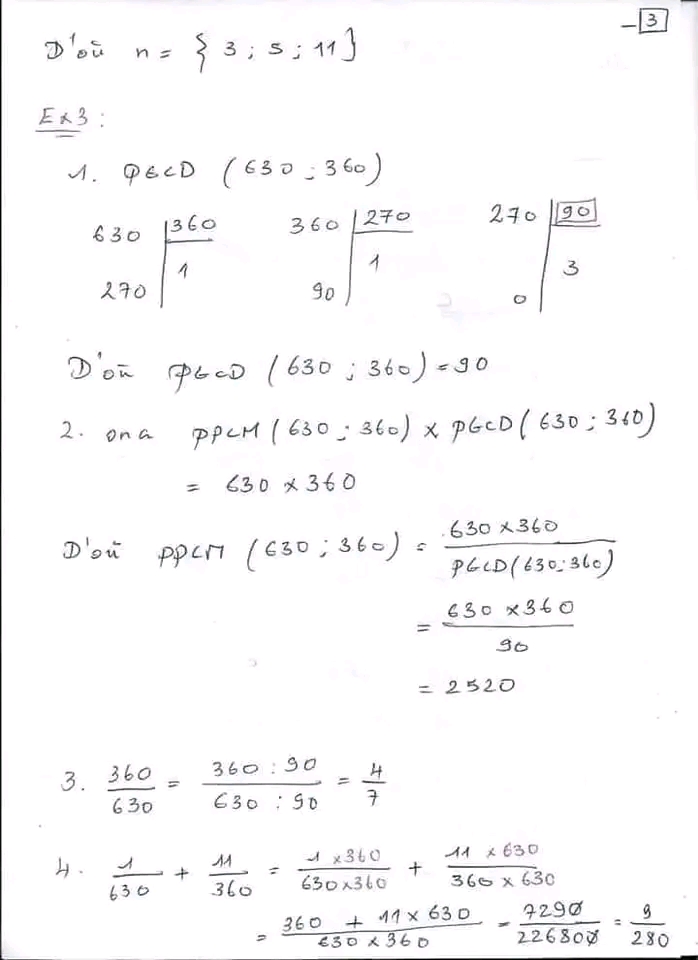 - 3
D'où n = { 3 ; 5 ; 11 }
Ex3 :
1. PGCD ( 630 ; 360 )
630 | 360
270 | 1
360 | 270
90 | 1
270 | 90
0 | 3
D'où PGCD ( 630 ; 360 ) = 90
2. on a PPCM ( 630 ; 360 ) × PGCD ( 630 ; 360 )
= 630 × 360
D'où PPCM ( 630 ; 360 ) = 630 × 360 / PGCD ( 630 ; 360 )
= 630 × 360 / 90
= 2520
3. 360 / 630 = 360 : 90 / 630 : 90 = 4 / 7
4. 1 / 630 + 11 / 360 = 1 × 360 / 630 × 360 + 11 × 630 / 360 × 630
= 360 + 11 × 630 / 630 × 360 = 7290 / 226800 = 9 / 280